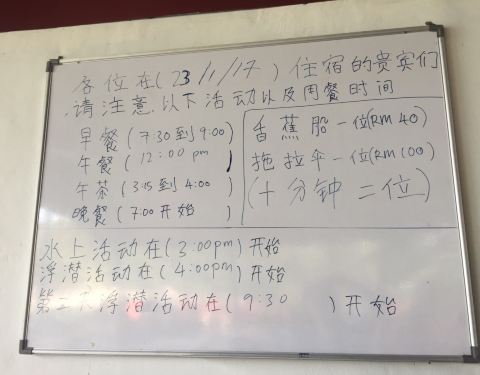 各位在(23/1/17)住宿的贵宾们
请注意.以下活动以及用餐时间
早餐(7:30到9:00)
午餐(12:00pm)
午茶(3:15到4:00)
晚餐(7:00开始)
香蕉船一位(RM40)
拖拉伞一位(RM100)
(十分钟二位)
水上活动在(3:00pm)开始
浮潜活动在(4:00pm)开始
第二天浮潜活动在(9:30)开始